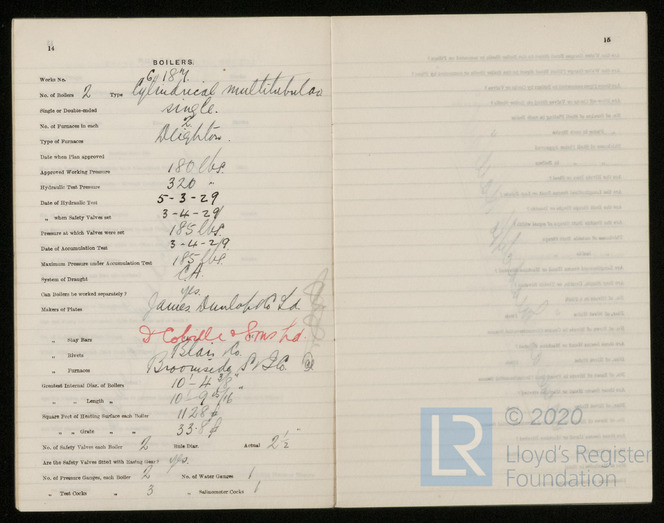 14
BOILERS.
Works No. 187.
No. of Boilers 2 Type Cylindrical multitubular
Single or Double-ended single.
No. of Furnaces in each 2
Type of Furnaces Deighton.
Date when Plan approved
Approved Working Pressure 180 lbs.
Hydraulic Test Pressure 320 "
Date of Hydraulic Test 5-3-29
„ when Safety Valves set 3-4-29
Pressure at which Valves were set 185 lbs.
Date of Accumulation Test 3-4-29
Maximum Pressure under Accumulation Test 185 lbs.
System of Draught
Can Boilers be worked separately? yes.
Makers of Plates James Dunlop & Co Ld
„ Stay Bars D Colville & Sons Ld.
„ Rivets Blair Co.
„ Furnaces
Greatest Internal Diam. of Boilers 10'-4 3/8"
„ „ Length „
Square Feet of Heating Surface each Boiler 1128
„ „ Grate „ „ 33.8
No. of Safety Valves each Boiler 2 Rule Diam. Actual 2½"
Are the Safety Valves fitted with Easing Gear? yes.
No. of Pressure Gauges, each Boiler 2 No. of Water Gauges 1
„ Test Cocks „ 3 „ Salinometer Cocks 1
15
LR
© 2020
Lloyd's Register
Foundation